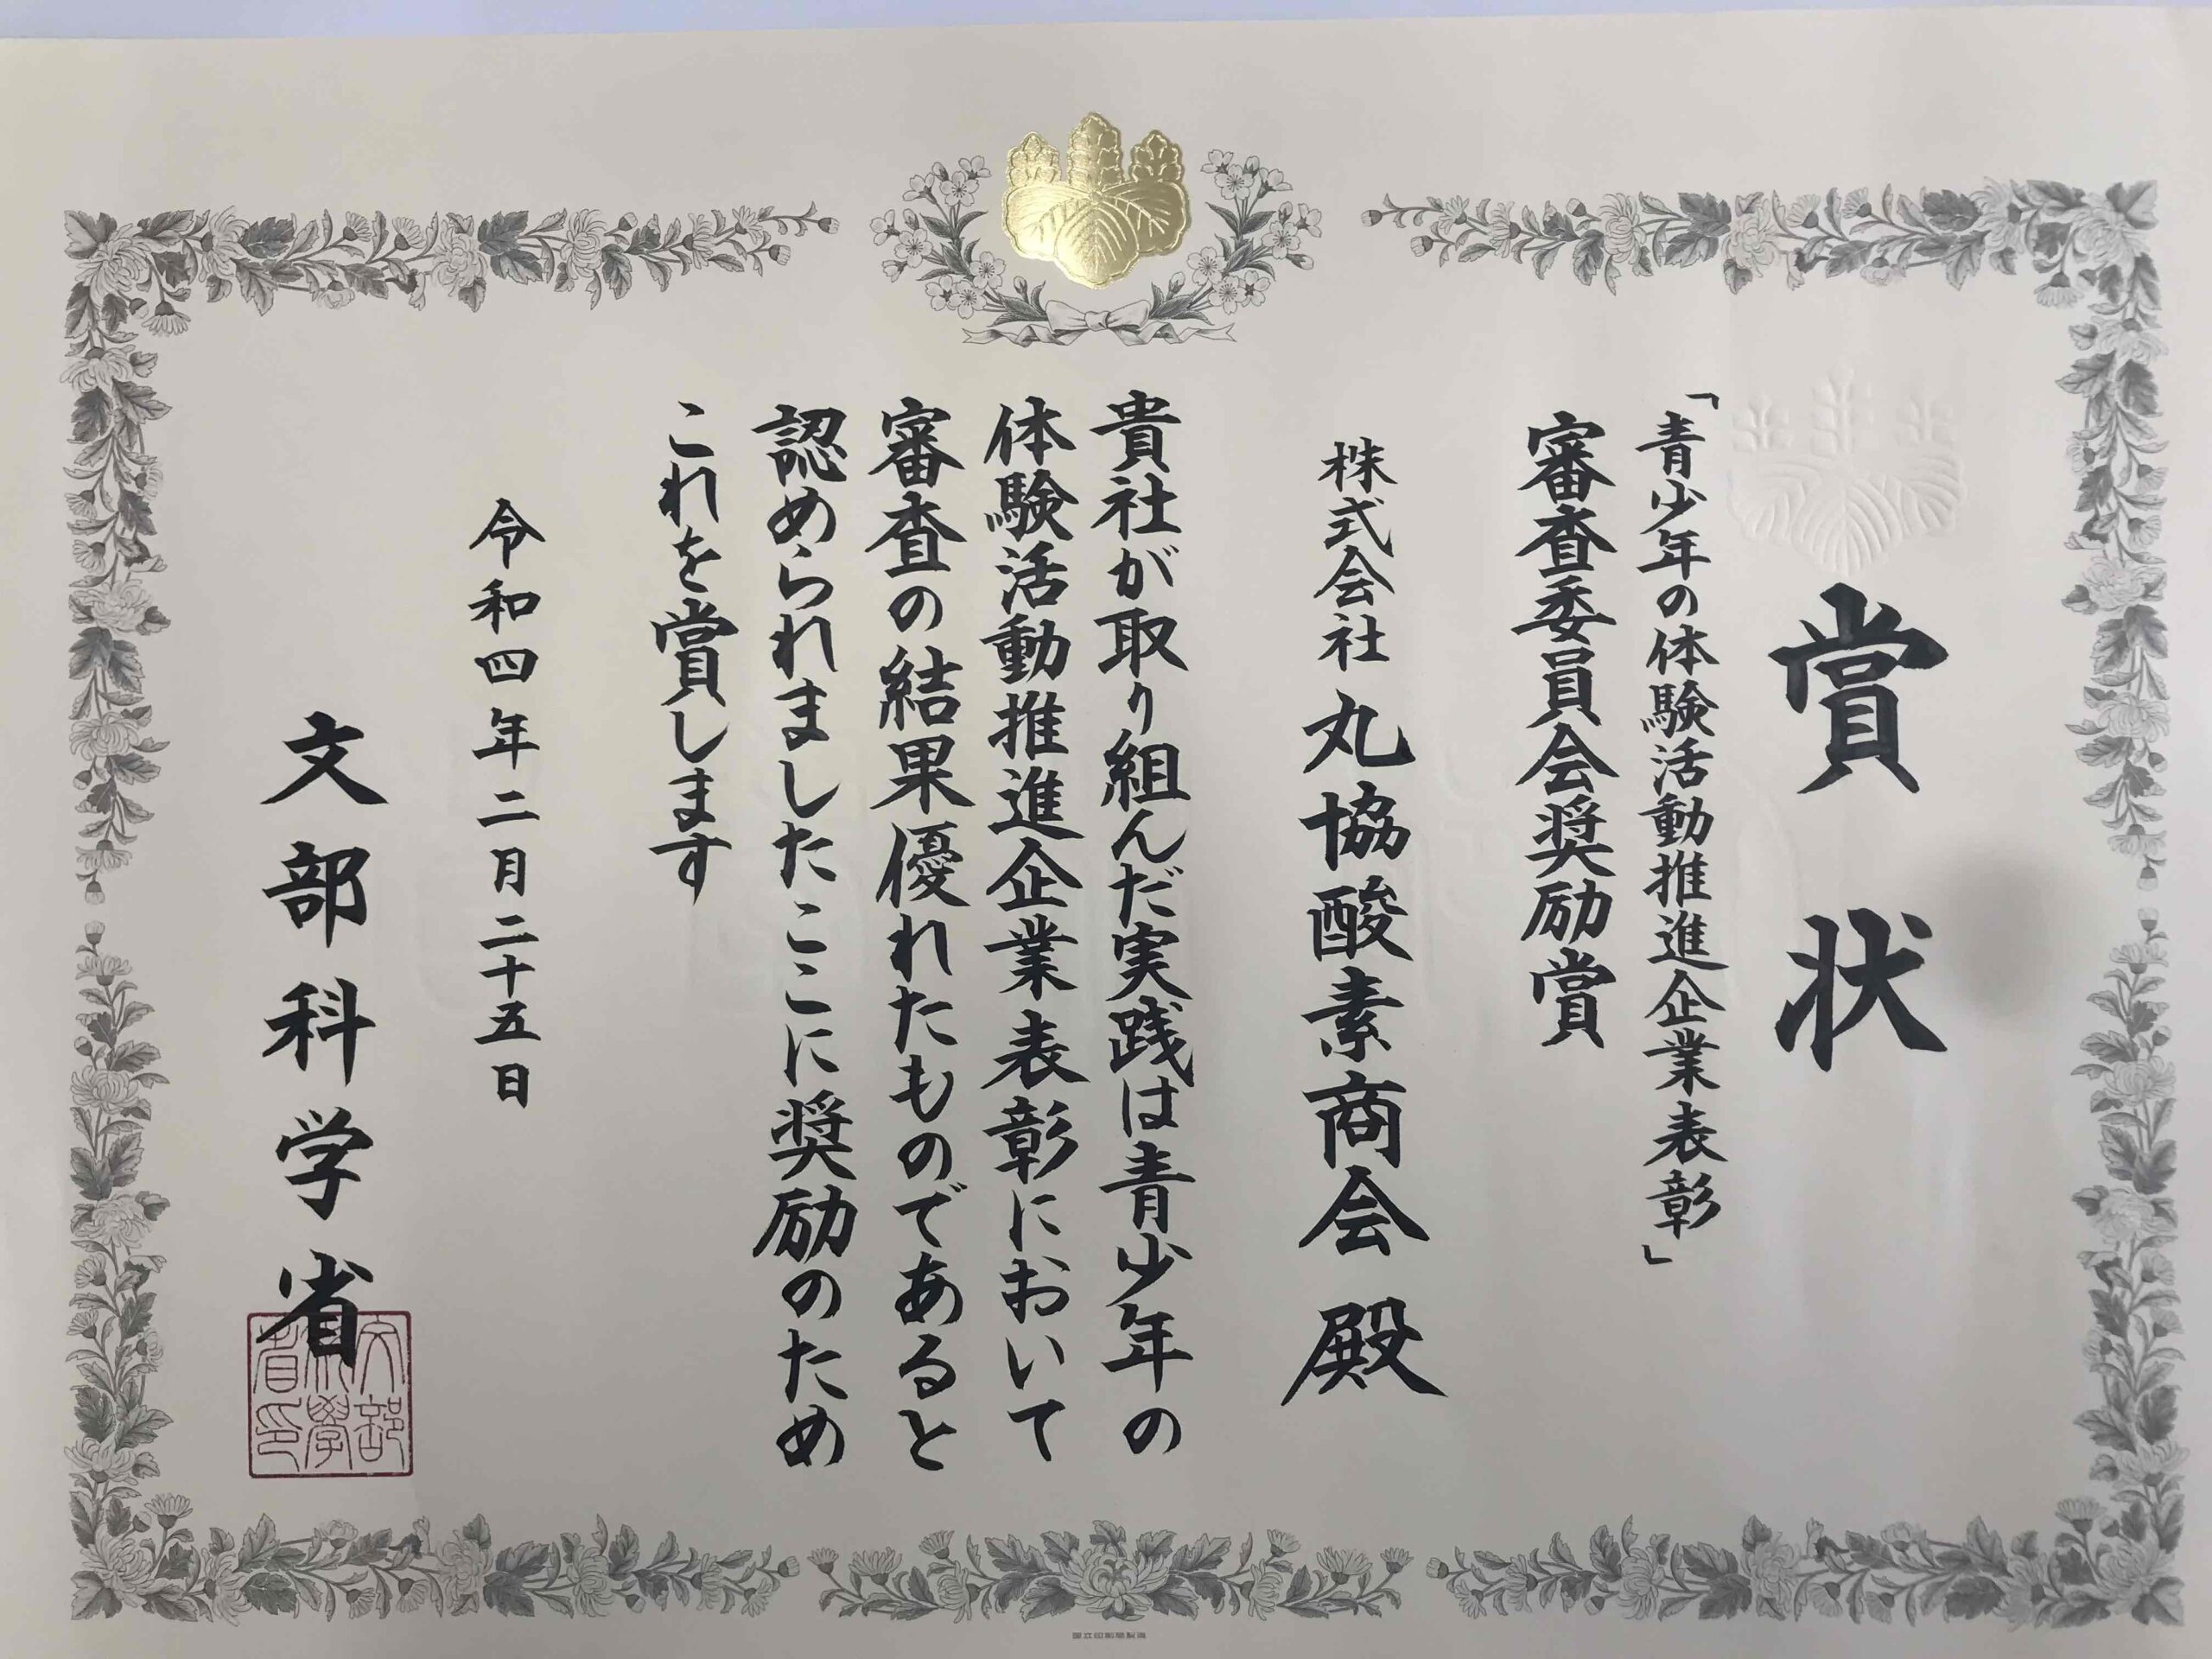 賞状
「青少年の体験活動推進企業表彰」
審査委員会奨励賞
株式会社 丸協酸素商会 殿
貴社が取り組んだ実践は青少年の
体験活動推進企業表彰において
審査の結果優れたものであると
認められましたここに奨励のため
これを賞します
令和四年二月二十五日
文部科学省
文部科學省印
国立印刷局製造